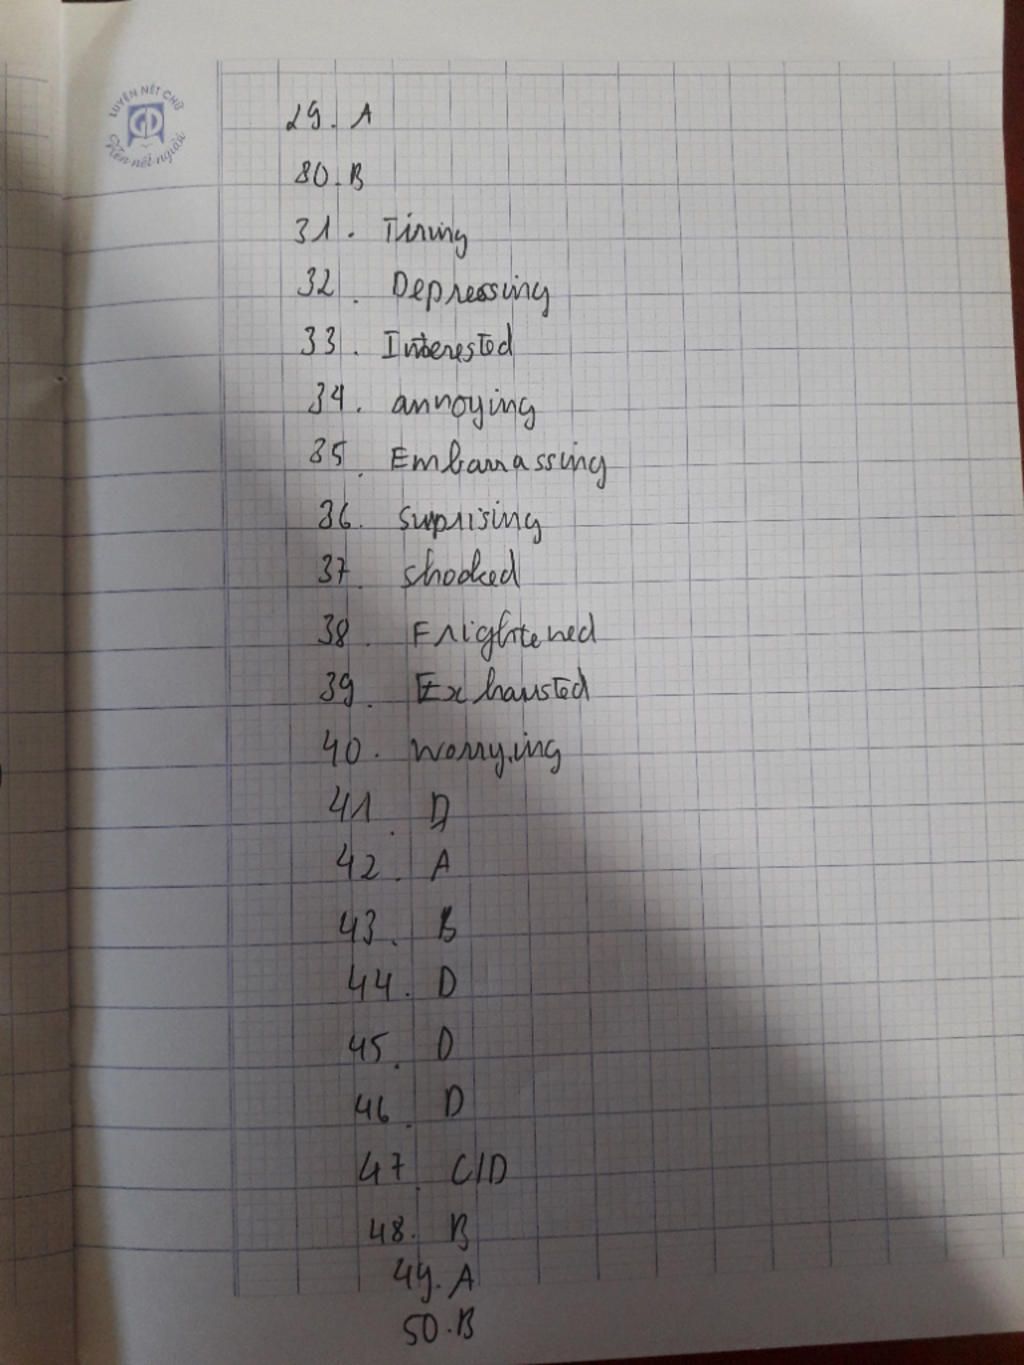 LUYỆN NÉT CHỮ
GD
Rèn nết người
29. A
30. B
31. Tiring
32. Depressing
33. Interested
34. annoying
35. Embarrassing
36. surprising
37. shocked
38. Frightened
39. Exhausted
40. worrying
41. D
42. A
43. B
44. D
45. D
46. D
47. C/D
48. B
49. A
50. B